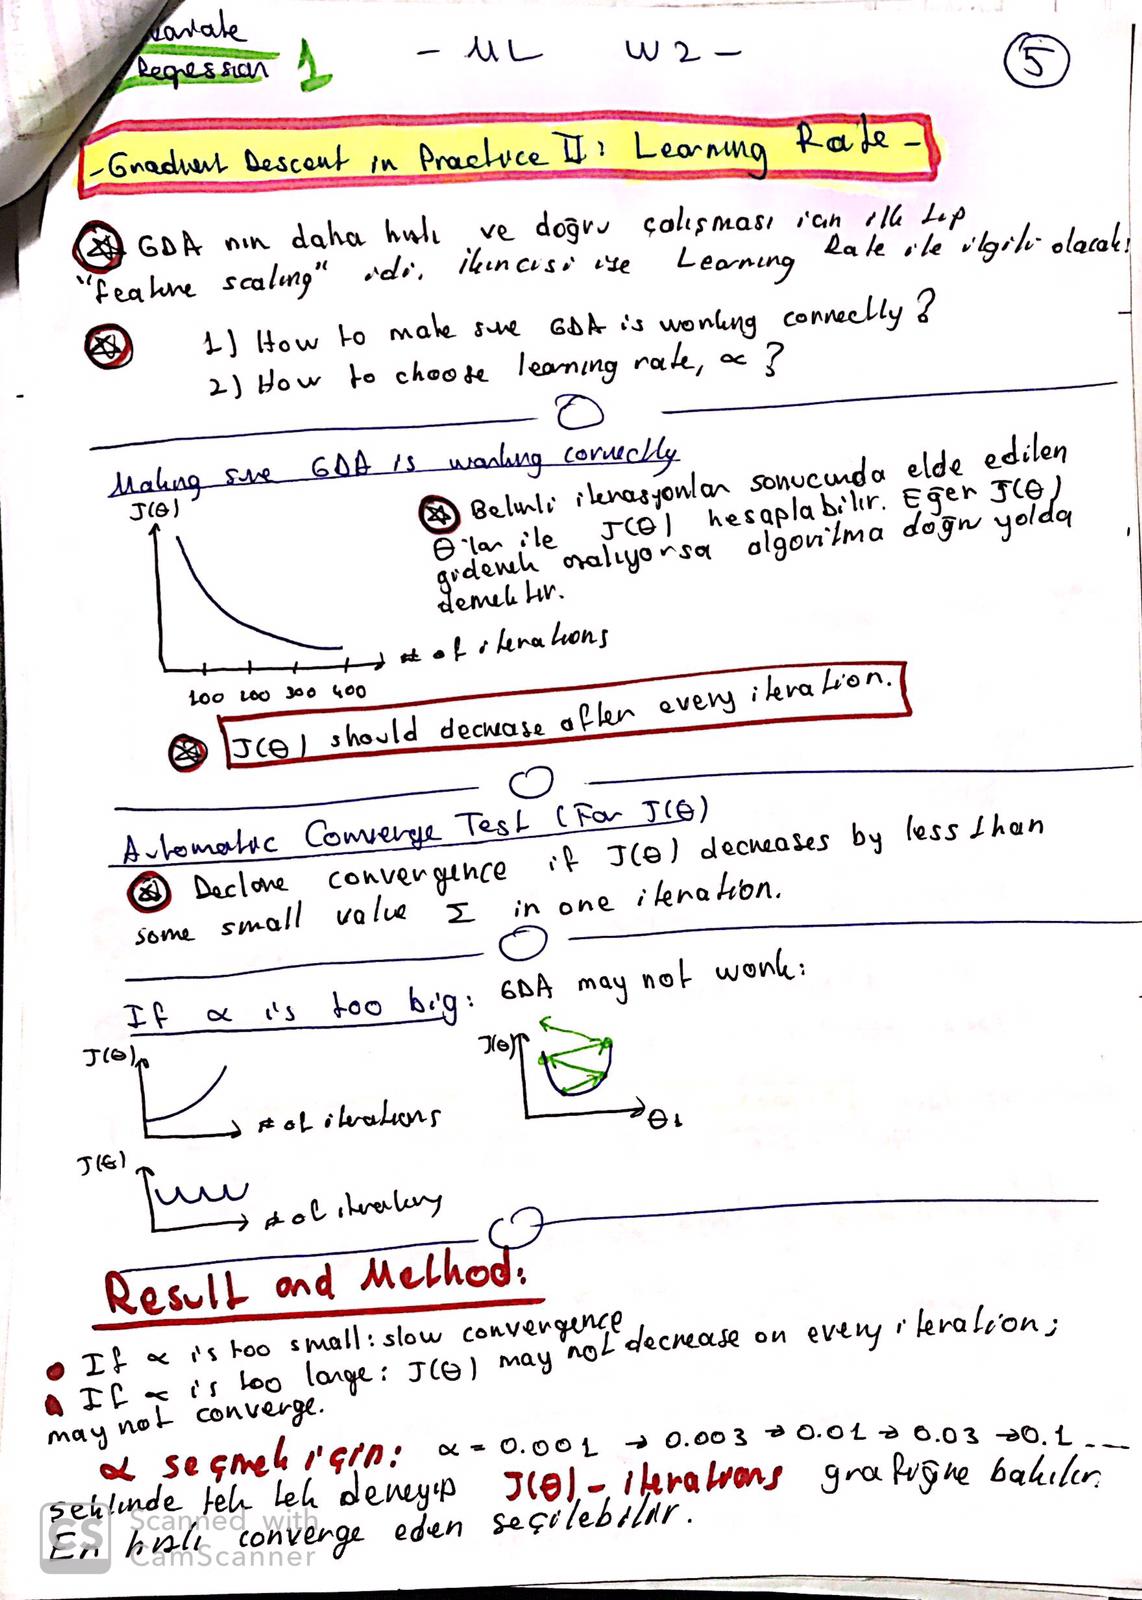 variate
Regression 1
- ML W2 -
5
- Gradient Descent in Practice II: Learning Rate -
GDA nın daha hızlı ve doğru çalışması için ilk tip
"feature scaling" idi, ikincisi ise Learning Rate ile ilgili olacak!
1) How to make sure GDA is working correctly?
2) How to choose learning rate, α?
Making sure GDA is working correctly
J(θ)
Belirli iterasyonlar sonucunda elde edilen
θ'lar ile J(θ) hesaplabilir. Eğer J(θ)
giderek azalıyorsa algoritma doğru yolda
demektir.
# of iterations
100 200 300 400
J(θ) should decrease after every iteration.
Automatic Converge Test (For J(θ)
Declare convergence if J(θ) decreases by less than
some small value Σ in one iteration.
If α is too big: GDA may not work:
J(θ)
# of iterations
J(θ)
θ1
J(θ)
# of iterations
Result and Method:
If α is too small: slow convergence
If α is too large: J(θ) may not decrease on every iteration;
may not converge.
α seçmek için: α = 0.001 → 0.003 → 0.01 → 0.03 → 0.1 ...
şeklinde tek tek deneyip J(θ) - iterations grafiğine bakılır.
En hızlı converge eden seçilebilir.
CS
Scanned with
CamScanner